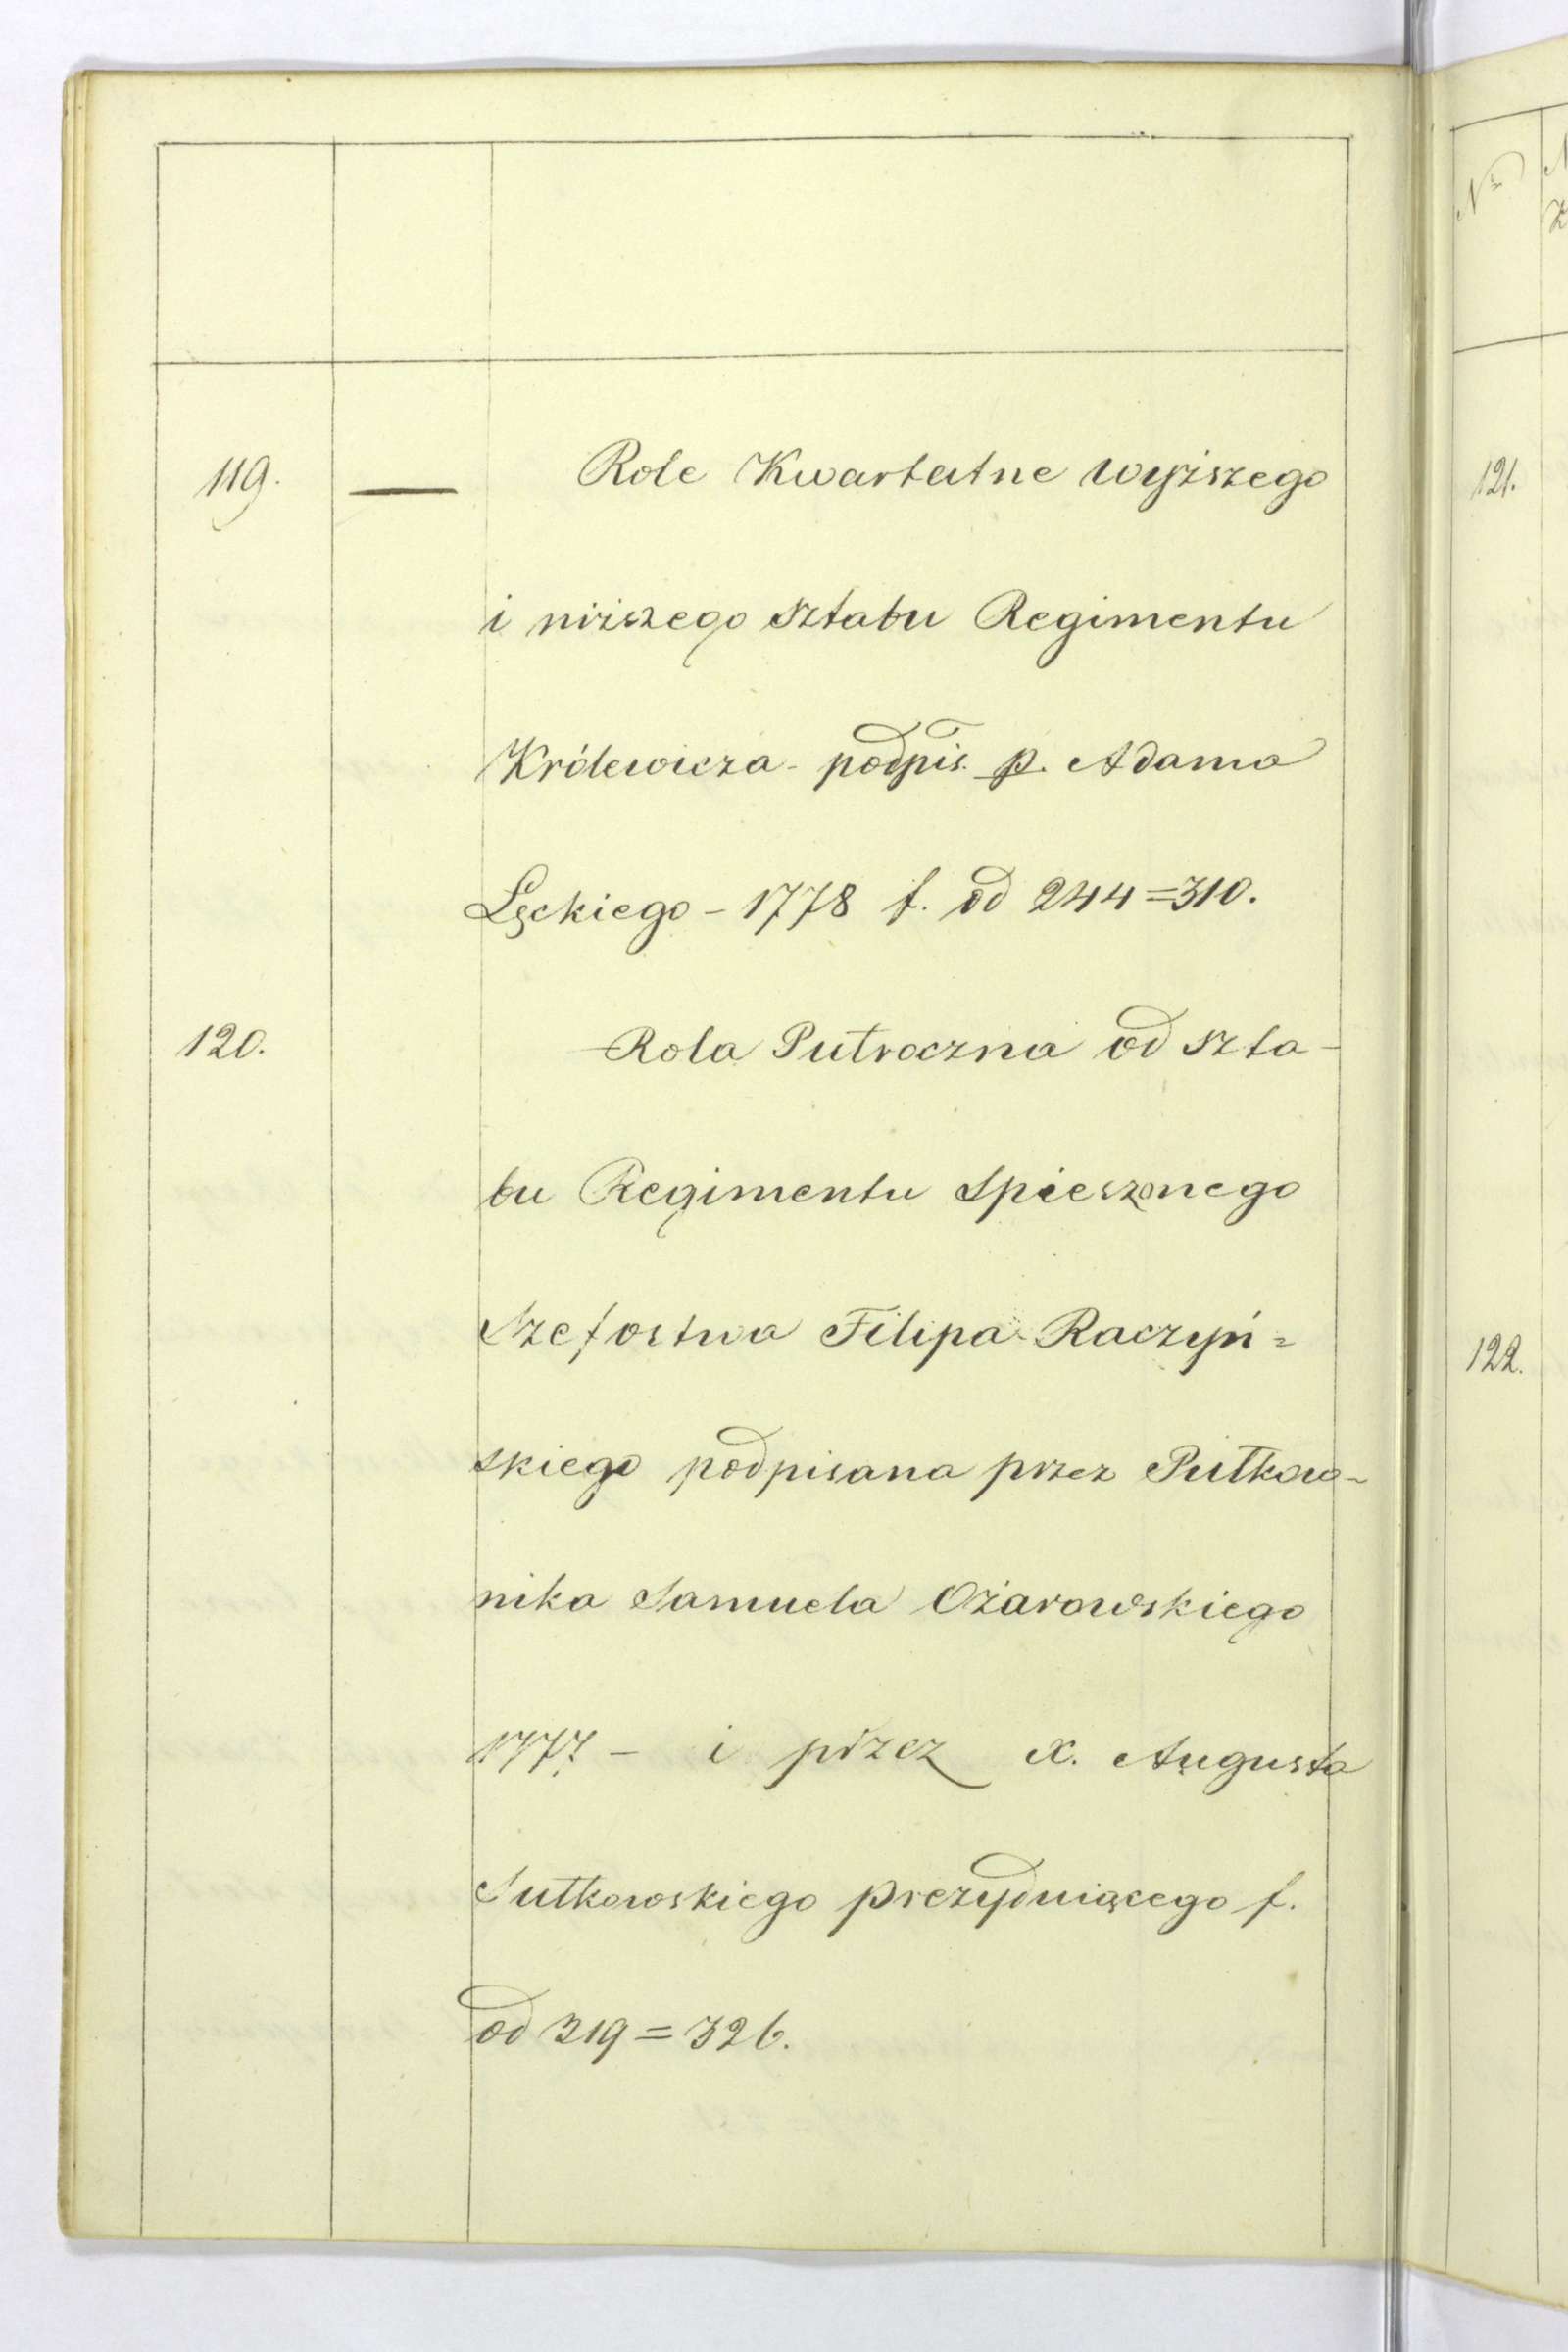 119. — Role Kwartalne wyższego
i niższego sztabu Regimentu
Królewicza - podpis. p. Adama
Łęckiego - 1778 f. od 244=310.
120. Rola Półroczna od szta-
bu Regimentu Spieszonego
Szefostwa Filipa Raczyń=
skiego podpisana przez Pułkow-
nika Samuela Ożarowskiego
1777 - i przez X. Augusta
Sułkowskiego prezyduiącego f.
od 319=326.
№
121.
122.